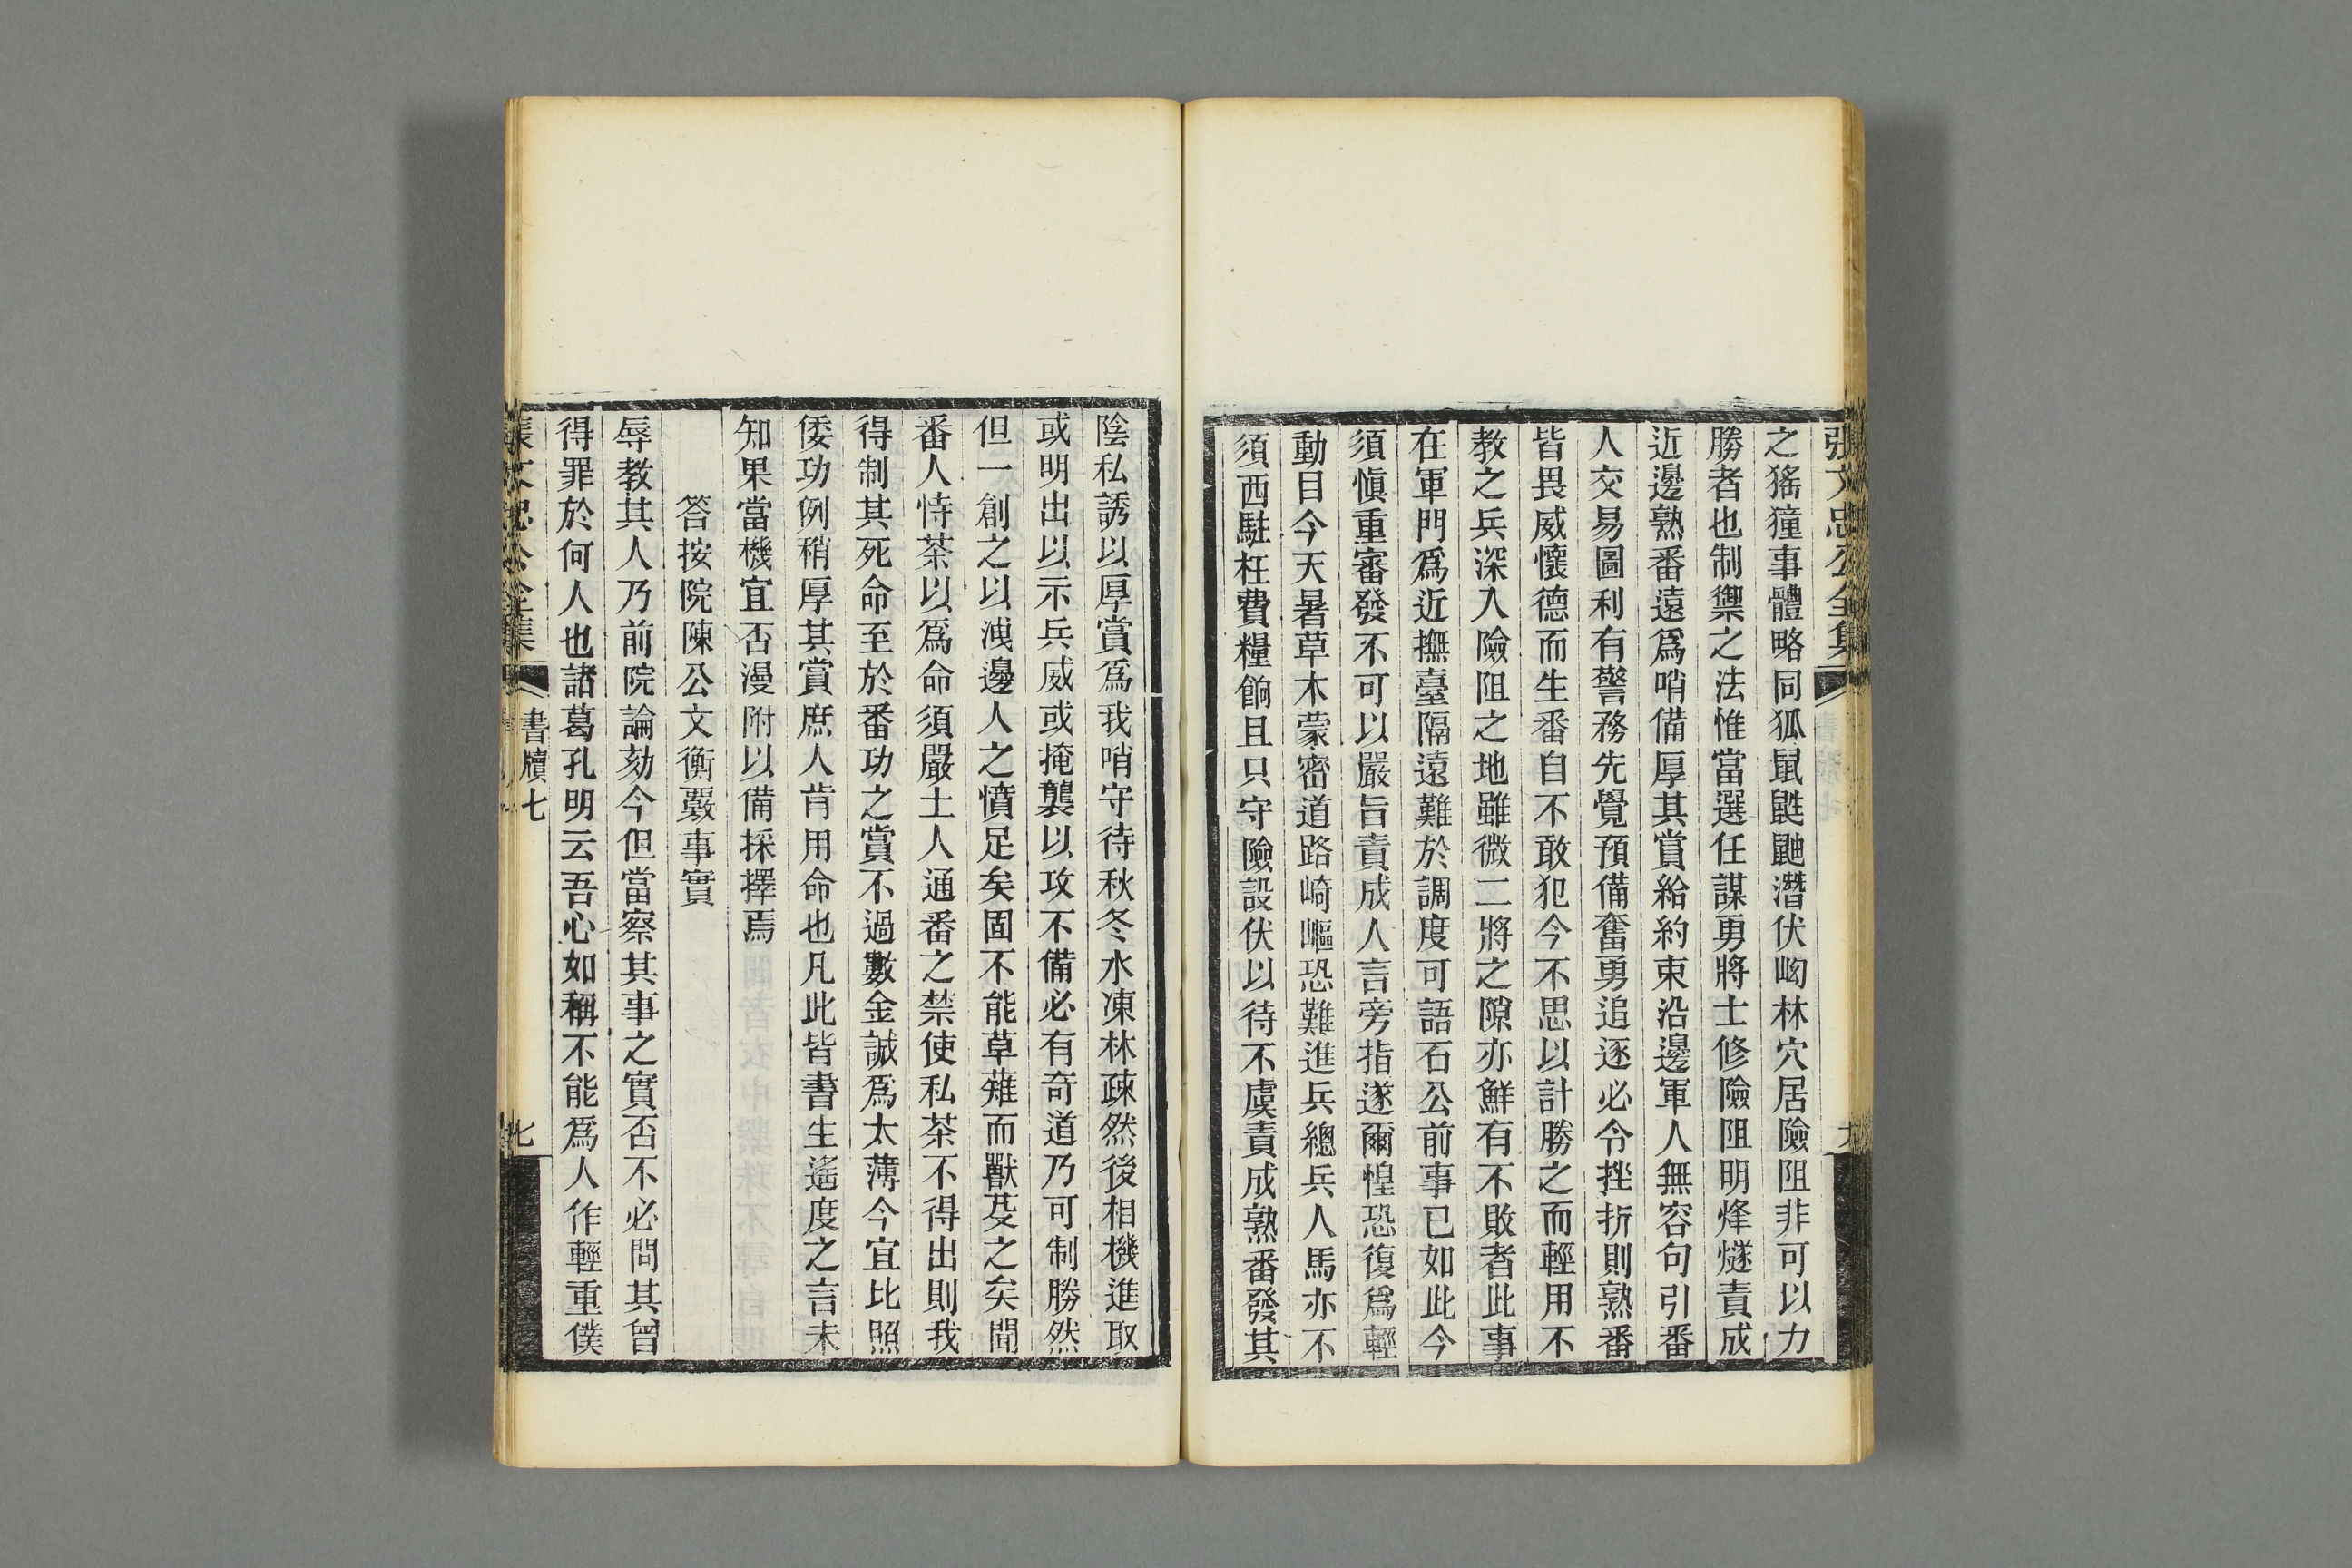 張文忠公全集
之猺獞事體略同狐鼠鼪鼬潛伏峒林穴居險阻非可以力
勝者也制禦之法惟當選任謀勇將士修險阻明烽燧責成
近邊熟番遠爲哨備厚其賞給約束沿邊軍人無容句引番
人交易圖利有警務先覺預備奮勇追逐必令挫折則熟番
皆畏威懷德而生番自不敢犯今不思以計勝之而輕用不
教之兵深入險阻之地雖微二將之隙亦鮮有不敗者此事
在軍門爲近撫臺隔遠難於調度可語石公前事已如此今
須愼重審發不可以嚴旨責成人言旁指遂爾惶恐復爲輕
動目今天暑草木蒙密道路崎嶇恐難進兵總兵人馬亦不
須西駐枉費糧餉且只守險設伏以待不虞責成熟番發其
陰私誘以厚賞爲我哨守待秋冬水凍林疎然後相機進取
或明出以示兵威或掩襲以攻不備必有奇道乃可制勝然
但一創之以洩邊人之憤足矣固不能草薙而獸芟之矣聞
番人恃茶以爲命須嚴土人通番之禁使私茶不得出則我
得制其死命至於番功之賞不過數金誠爲太薄今宜比照
倭功例稍厚其賞庶人肯用命也凡此皆書生遙度之言未
知果當機宜否漫附以備採擇焉
答按院陳公文衡覈事實
辱教其人乃前院論劾今但當察其事之實否不必問其曾
得罪於何人也諸葛孔明云吾心如稱不能爲人作輕重僕
張文忠公全集
書牘七
七